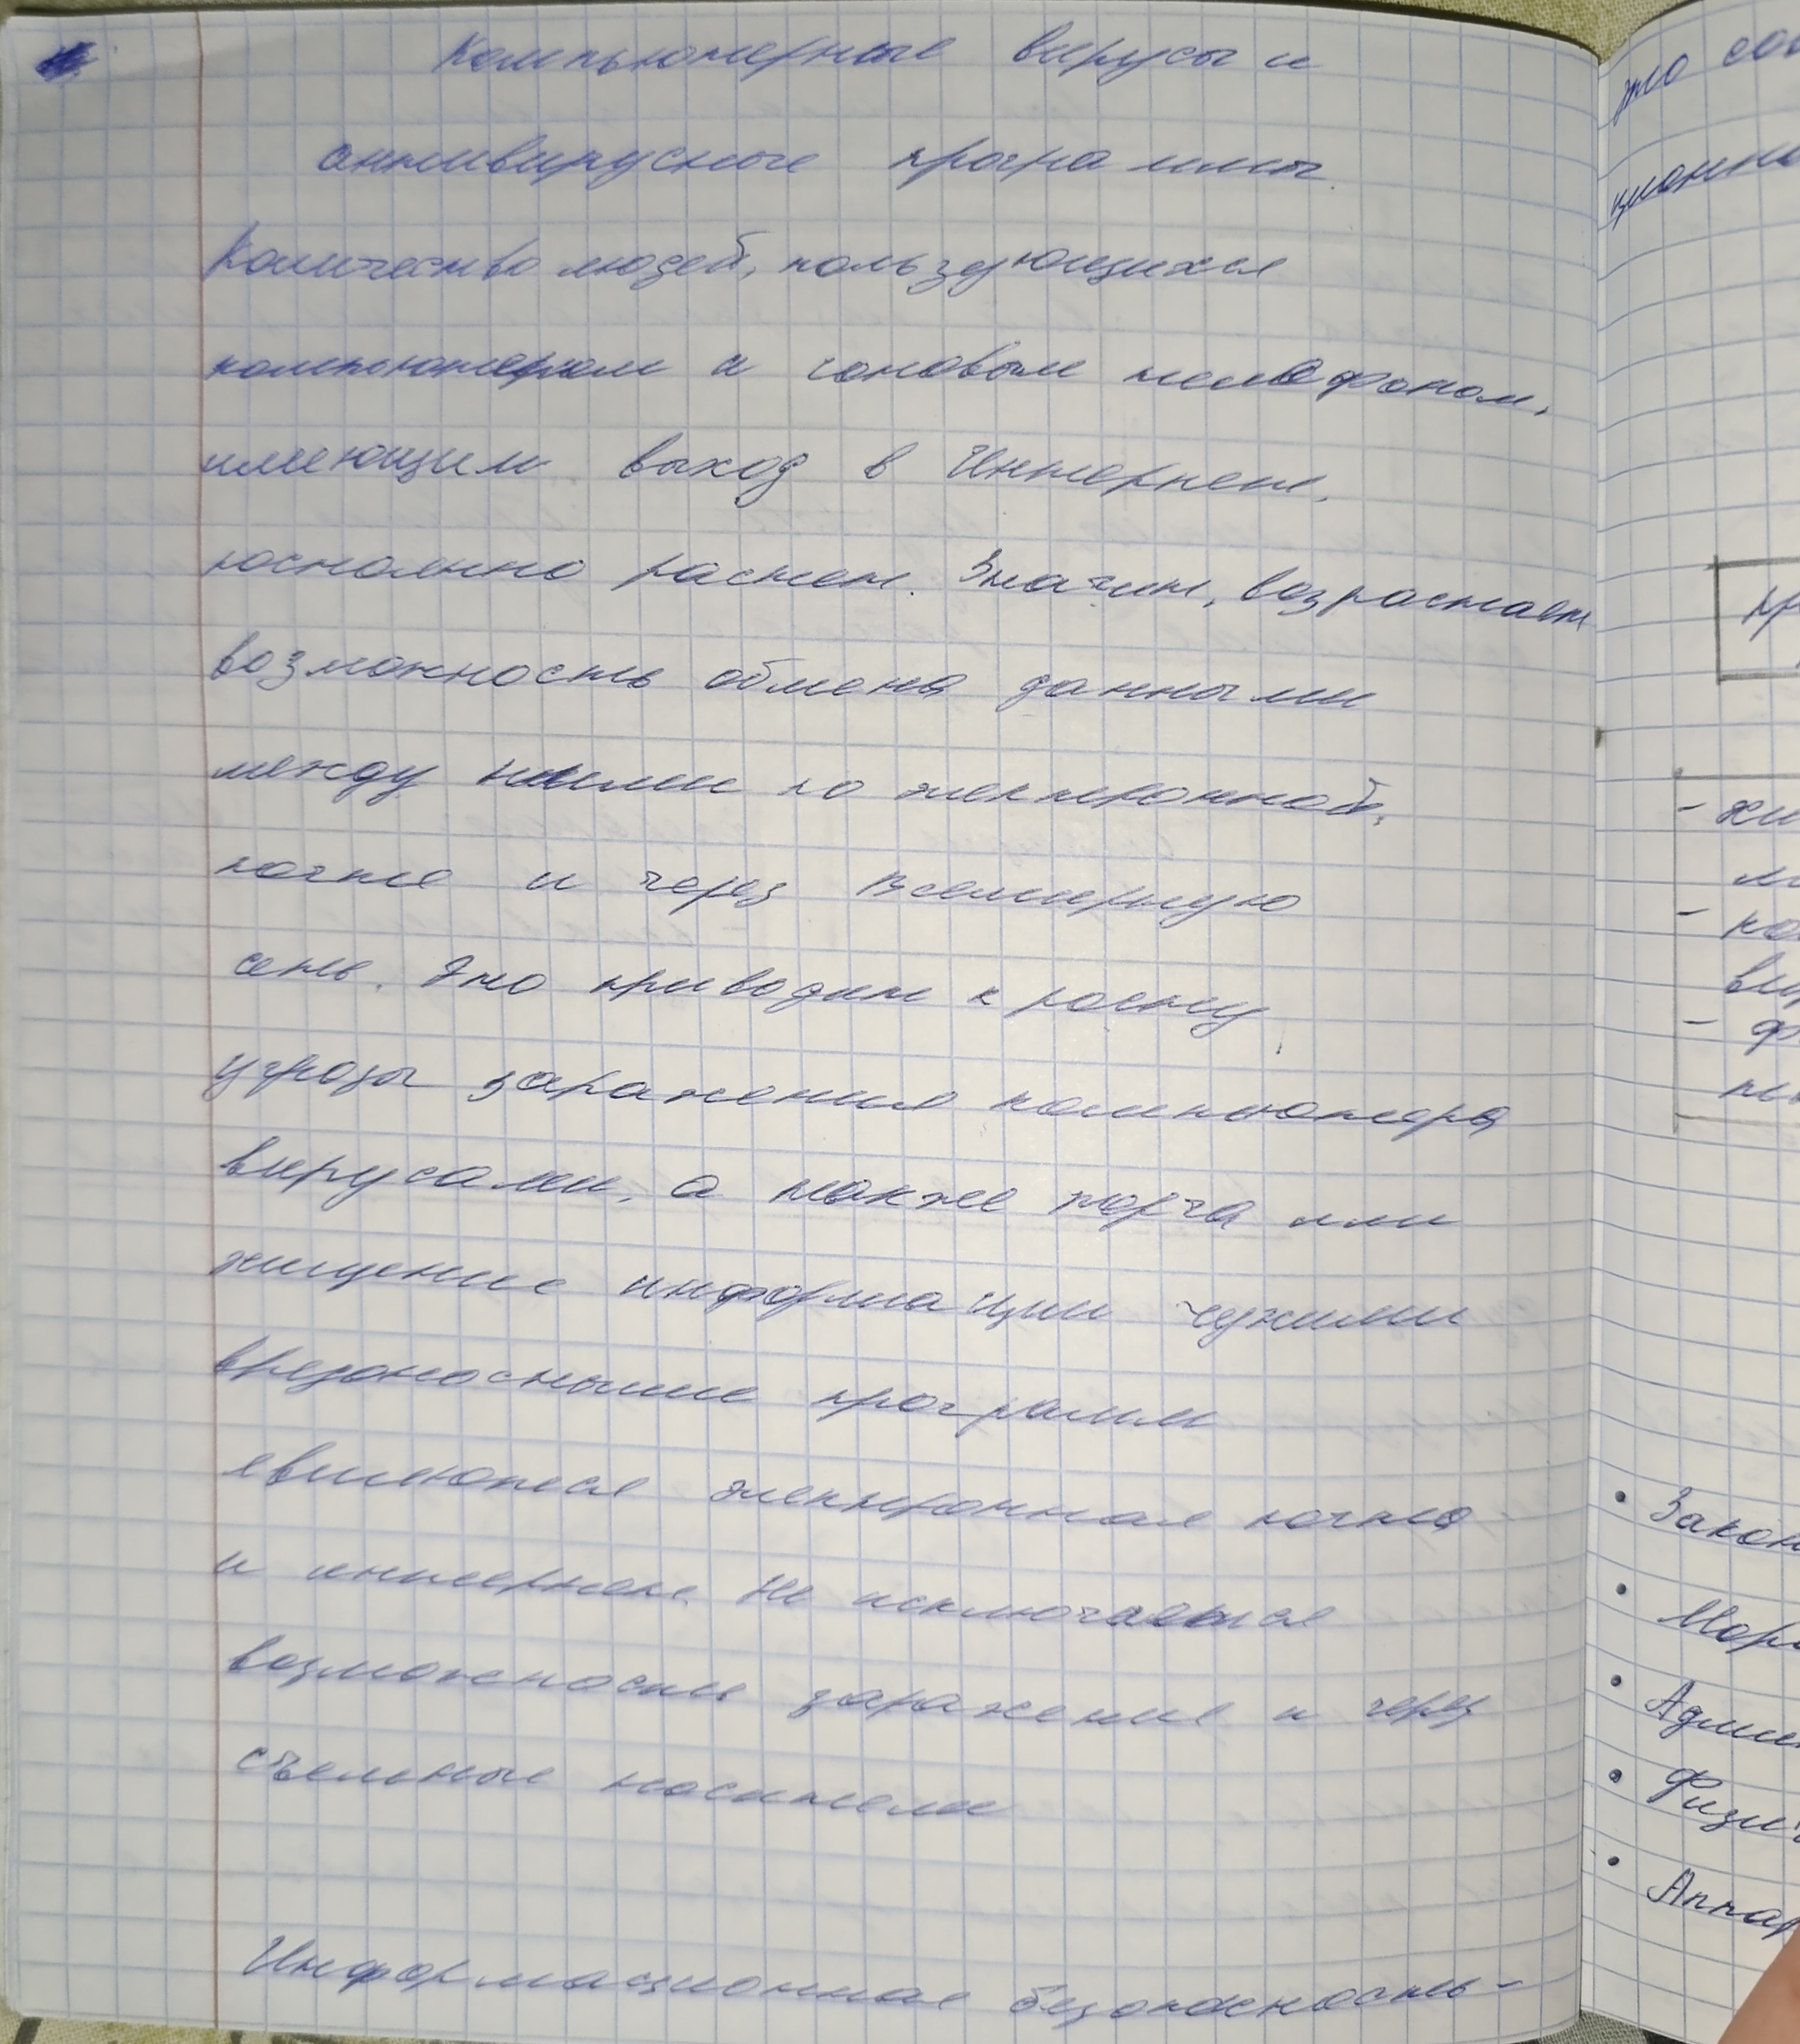 Компьютерные вирусы и
антивирусные программы.
Количество людей, пользующихся
компьютером и сотовым телефоном,
имеющим выход в Интернет,
постоянно растет. Значит, возрастает
возможность обмена данными
между ними по электронной
почте и через Всемирную
сеть. Это приводит к росту
угрозы заражения компьютера
вирусами, а также порча или
хищение информации чужими
вредоносными программ
являются электронная почта
и интернет. Не исключается
возможность заражения и через
съемные носители
Информационная безопасность-
это
Закон
Физич